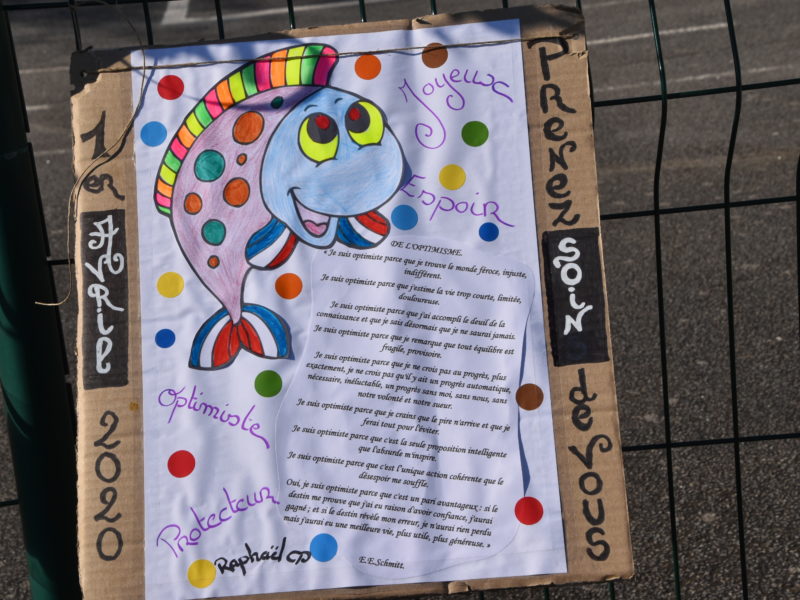 1er
AVRIL
2020
Joyeux
Espoir
Optimiste
Protecteur
Raphaël CP
DE L'OPTIMISME.
« Je suis optimiste parce que je trouve le monde féroce, injuste,
indifférent.
Je suis optimiste parce que j'estime la vie trop courte, limitée,
douloureuse.
Je suis optimiste parce que j'ai accompli le deuil de la
connaissance et que je sais désormais que je ne saurai jamais.
Je suis optimiste parce que je remarque que tout équilibre est
fragile, provisoire.
Je suis optimiste parce que je ne crois pas au progrès, plus
exactement, je ne crois pas qu'il y ait un progrès automatique,
nécessaire, inéluctable, un progrès sans moi, sans nous, sans
notre volonté et notre sueur.
Je suis optimiste parce que je crains que le pire n'arrive et que je
ferai tout pour l'éviter.
Je suis optimiste parce que c'est la seule proposition intelligente
que l'absurde m'inspire.
Je suis optimiste parce que c'est l'unique action cohérente que le
désespoir me souffle.
Oui, je suis optimiste parce que c'est un pari avantageux : si le
destin me prouve que j'ai eu raison d'avoir confiance, j'aurai
gagné ; et si le destin révèle mon erreur, je n'aurai rien perdu
mais j'aurai eu une meilleure vie, plus utile, plus généreuse. »
E.E.Schmitt.
PRenez
SOiN
de VOUS